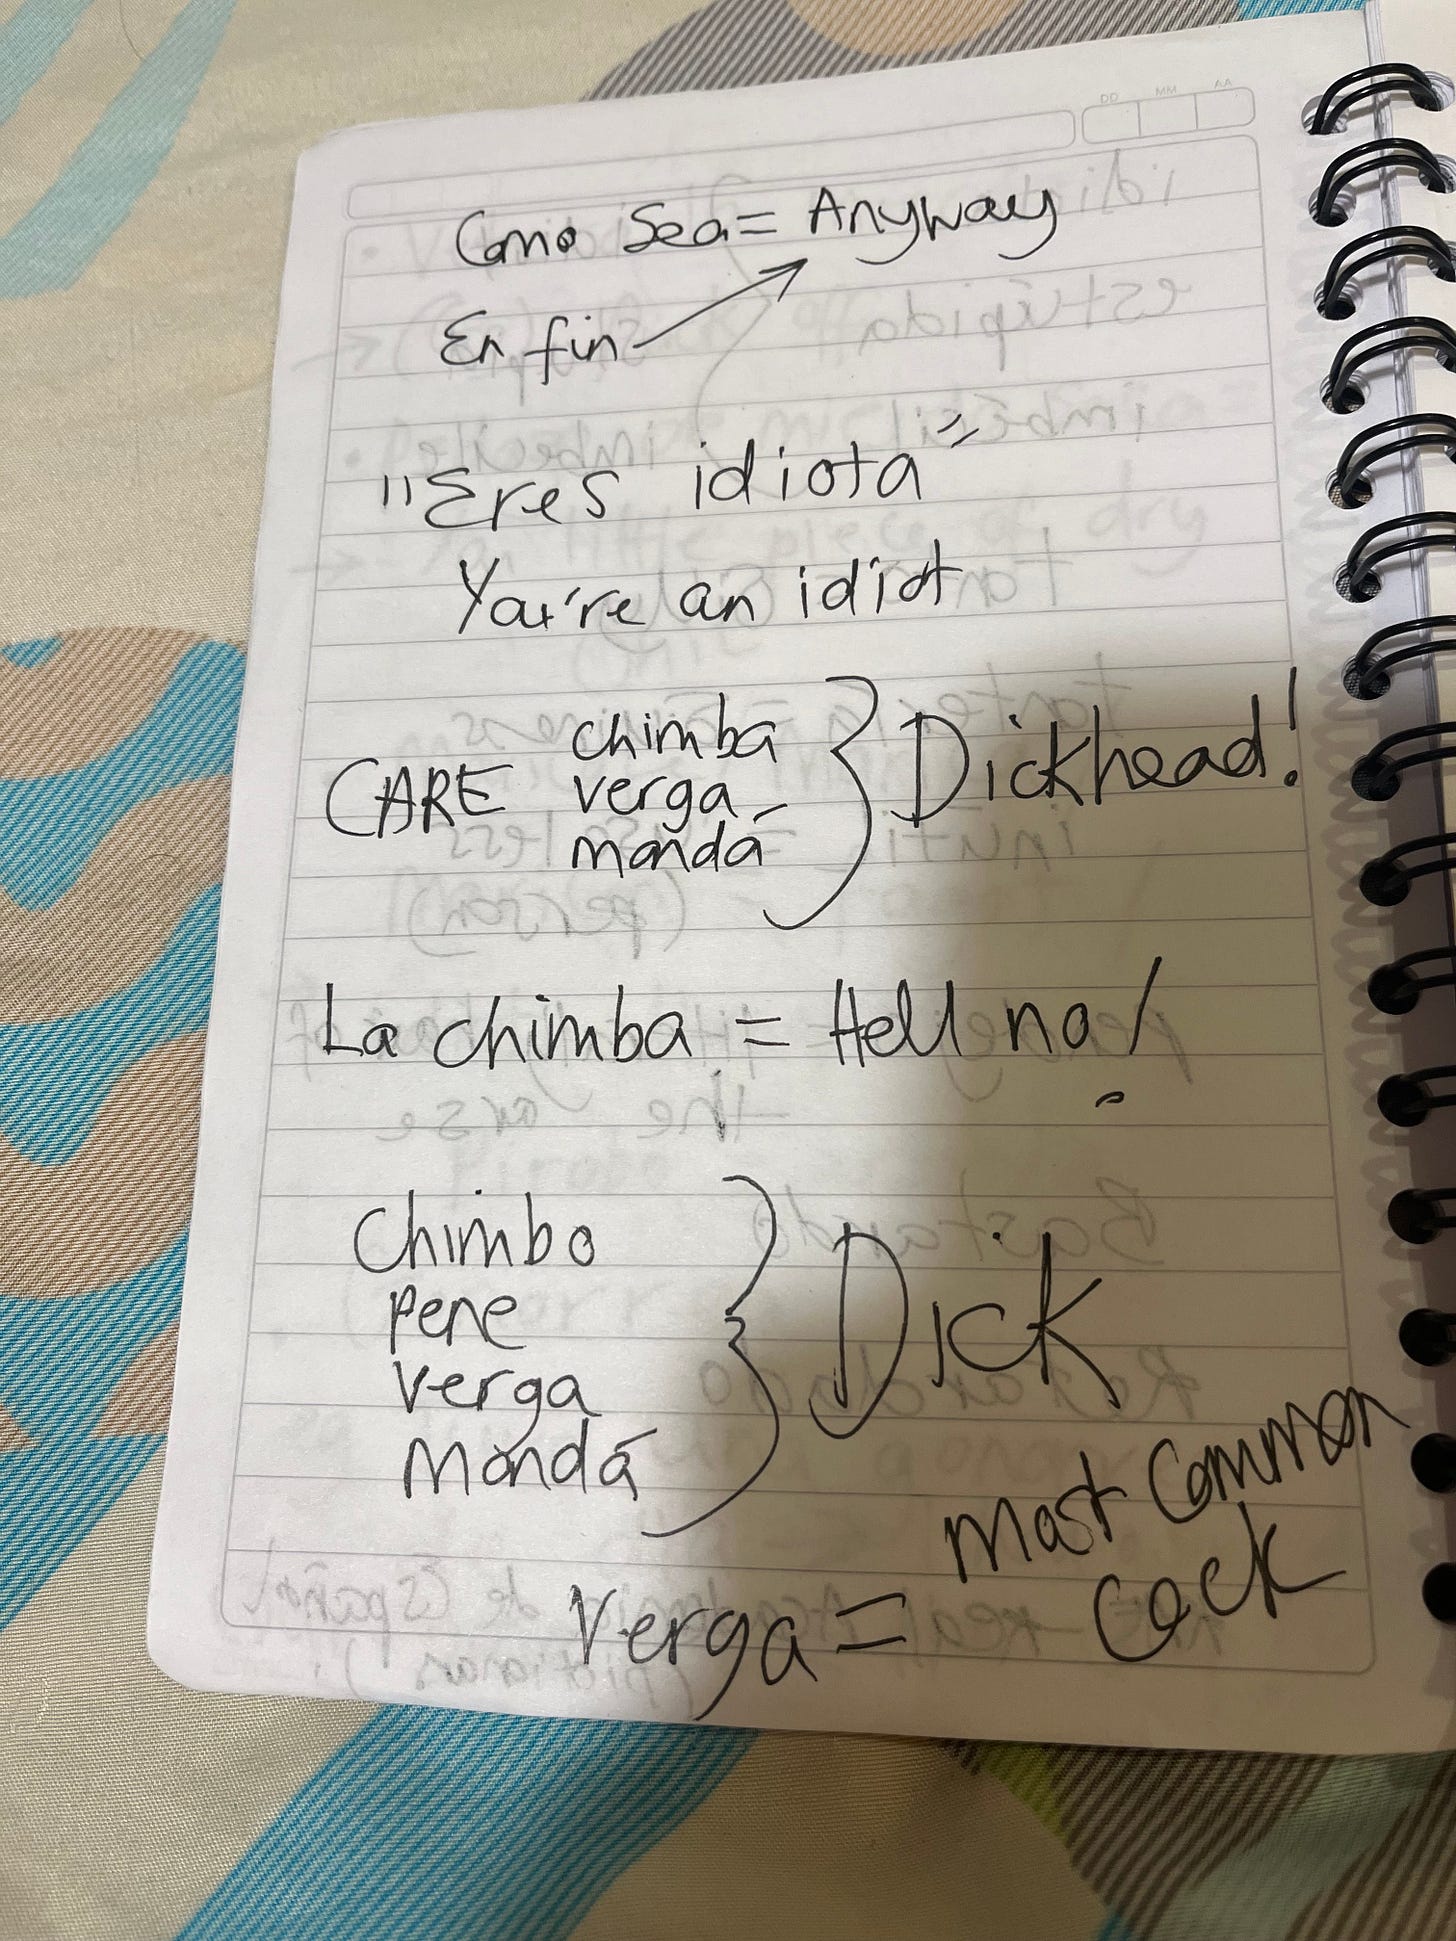 DD MM AA
Como Sea = Anyway
En fin
"Eres idiota"
You're an idiot
CARE chimba
verga
mondá
Dickhead!
La chimba = Hell no!
Chimbo
pene
verga
mondá
Dick
Verga = most common
cock